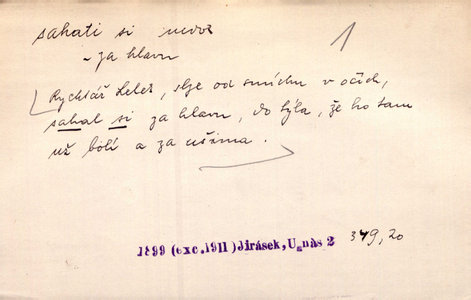 sahati si nedok
– za hlavu
1
Rychtář Lelek, slze od smíchu v očích,
sahal si za hlavu, do týla, že ho tam
už bolí a za ušima.
1899 (exc.1911) Jirásek, U nás 2 349,20